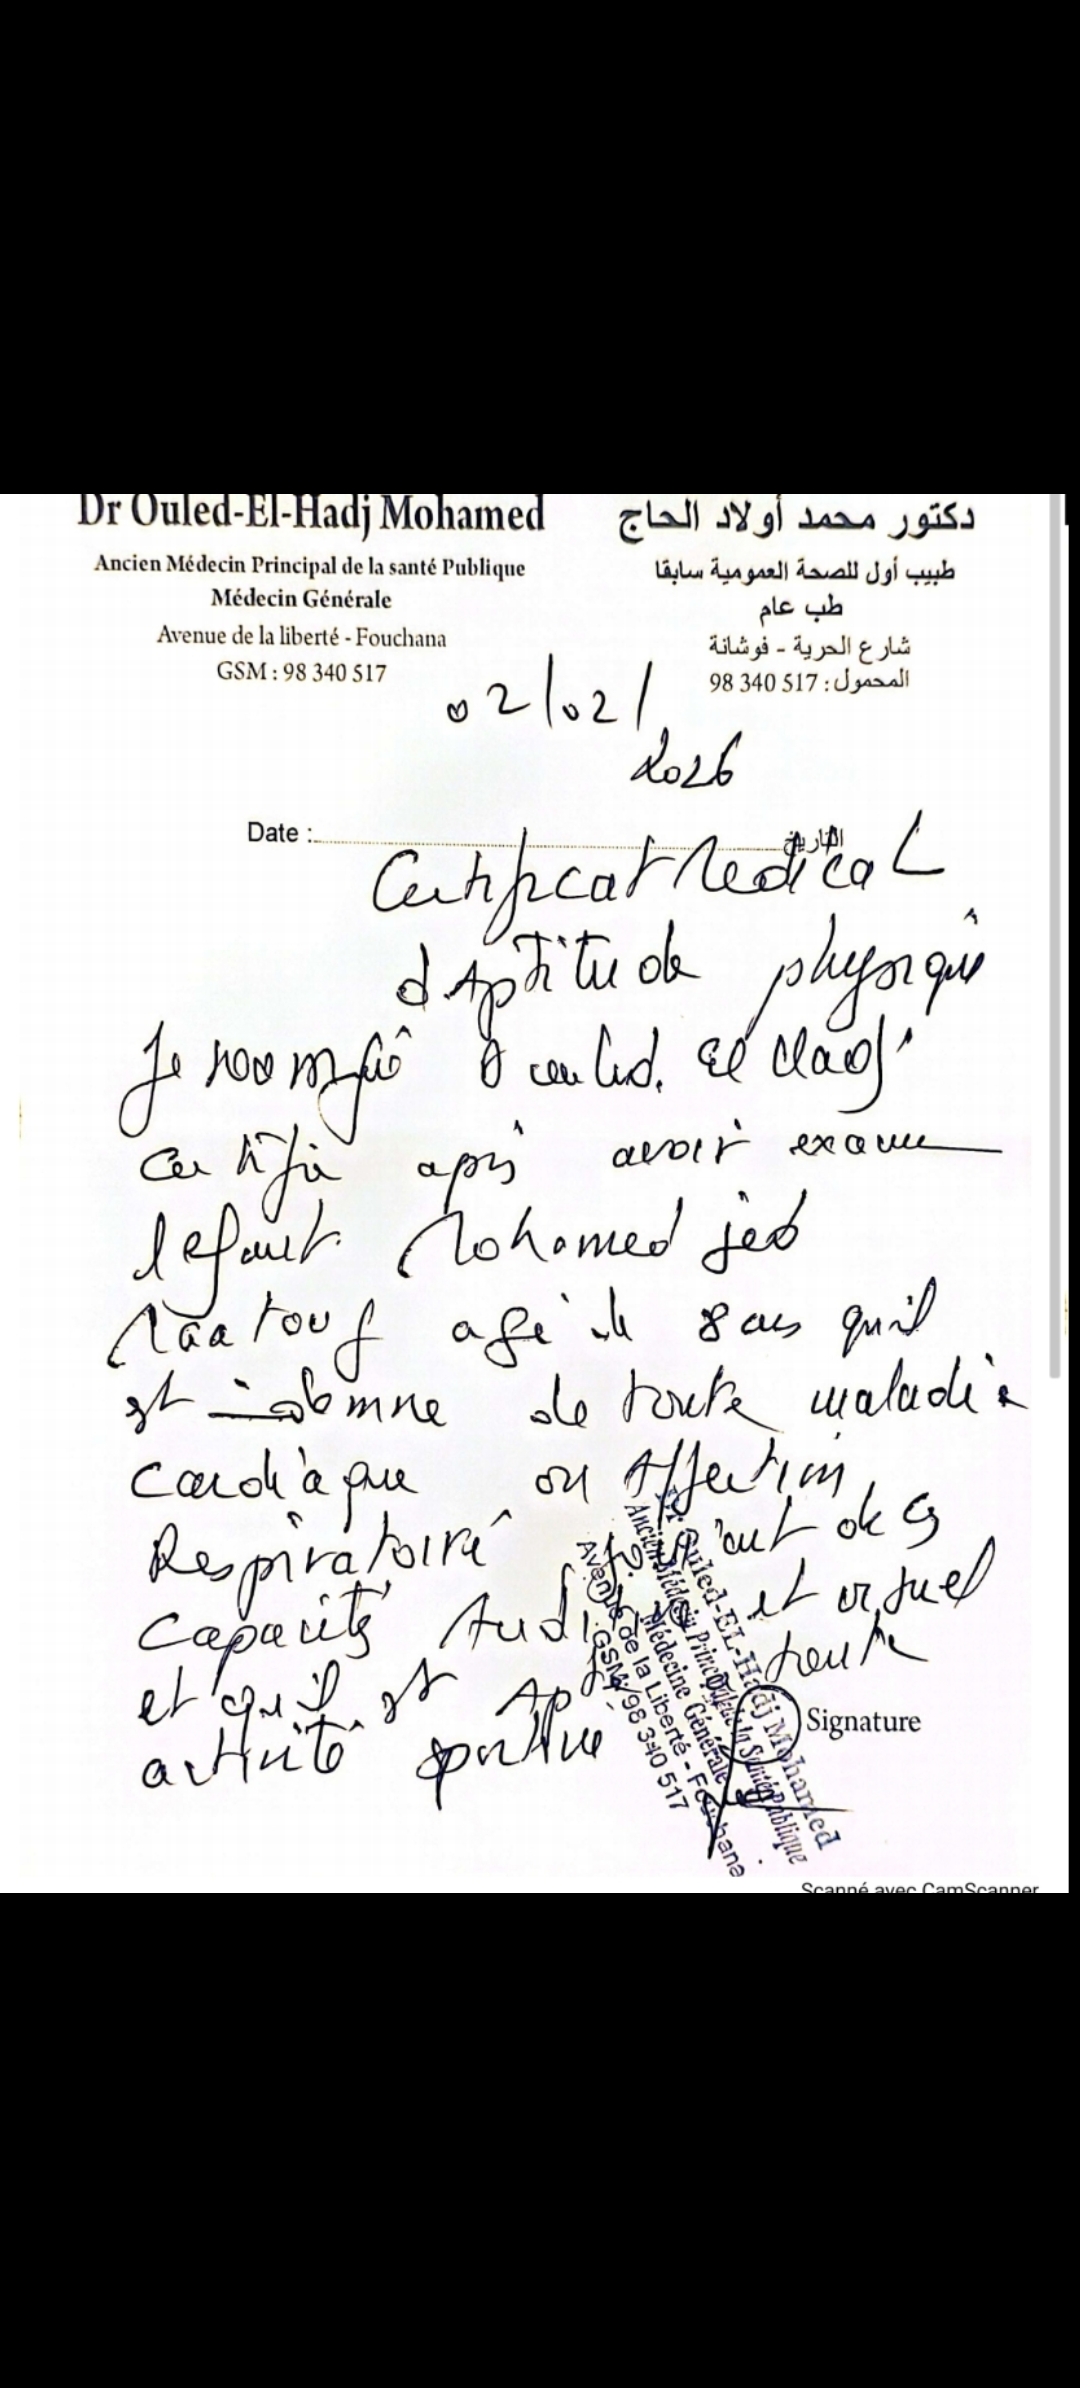 Dr Ouled-El-Hadj Mohamed
Ancien Médecin Principal de la santé Publique
Médecin Générale
Avenue de la liberté - Fouchana
GSM : 98 340 517
دكتور محمد أولاد الحاج
طبيب أول للصحة العمومية سابقا
طب عام
شارع الحرية - فوشانة
المحمول : 517 340 98
02/02/
2026
Date : التاريخ
Certificat Medical
d'Aptitude physique
Je soussigné Ouled. El Hadj
certifie après avoir examine
l'efant Mohamed
Maatouf agé de 8 ans qu'il
est indemne de toute maladie
cardiaque ou Affection
Respiratoire de ces
capacités et visuel
et qu'il est toute
activité sportive
Dr Ouled-EL-Hadj Mohamed
Ancien Médecin Principal de la Santé Publique
Médecine Générale
Avenue de la Liberté - Fouchana
GSM: 98 340 517
Signature
Scanné avec CamScanner